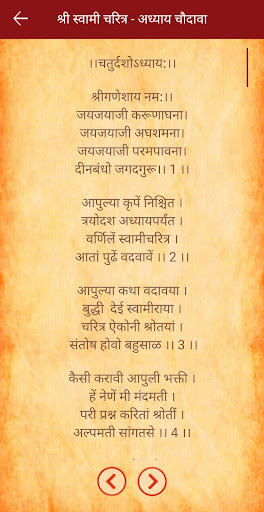 श्री स्वामी चरित्र - अध्याय चौदावा
।।चतुर्दशोऽध्याय:।।
श्रीगणेशाय नम:।।
जयजयाजी करूणाघना।
जयजयाजी अघशमना।
जयजयाजी परमपावना।
दीनबंधो जगदगुरू।। 1 ।।
आपुल्या कृपें निश्चित ।
त्रयोदश अध्यायपर्यंत ।
वर्णिलें स्वामीचरित्र ।
आतां पुढें वदवावें ।। 2 ।।
आपुल्या कथा वदावया ।
बुद्धी  देई स्वामीराया ।
चरित्र ऐकोनी श्रोतयां ।
संतोष होवो बहुसाळ ।। 3 ।।
कैसी करावी आपुली भक्ती ।
हें नेणें मी मंदमती ।
परी प्रश्न करितां श्रोतीं ।
अल्पमती सांगतसे ।। 4 ।।